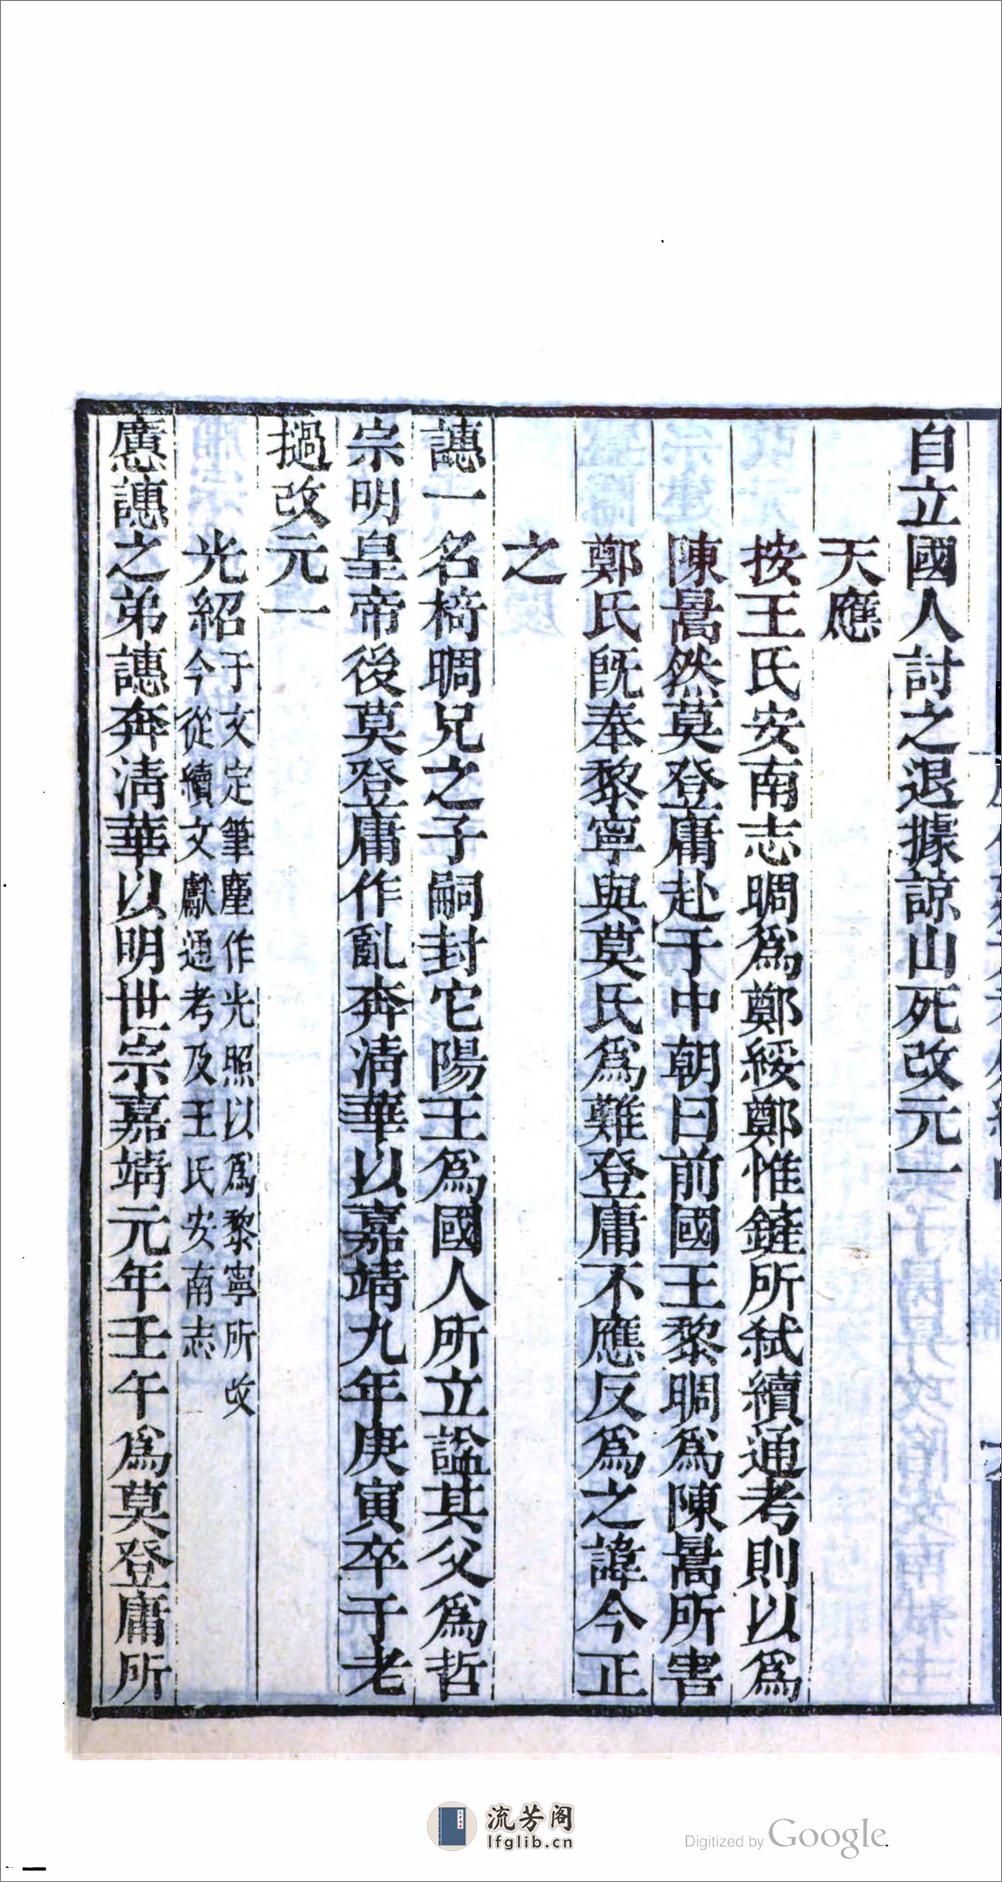 自立國人討之退據諒山死改元一
天應
按王氏安南志晭爲鄭綏鄭惟鏟所弑續通考則以爲
陳暠然莫登庸赴于中朝曰前國王黎晭爲陳暠所害
鄭氏旣奉黎寧與莫氏爲難登庸不應反爲之諱今正
之
譓一名椅晭兄之子嗣封它陽王爲國人所立謚其父爲哲
宗明皇帝後莫登庸作亂奔清華以嘉靖九年庚寅卒于老
撾改元一
光紹于文定筆塵作光照以爲黎寧所改
今從續文獻通考及王氏安南志
懬譓之弟譓奔清華以明世宗嘉靖元年壬午爲莫登庸所
流芳阁
lfglib.cn
Digitized by Google